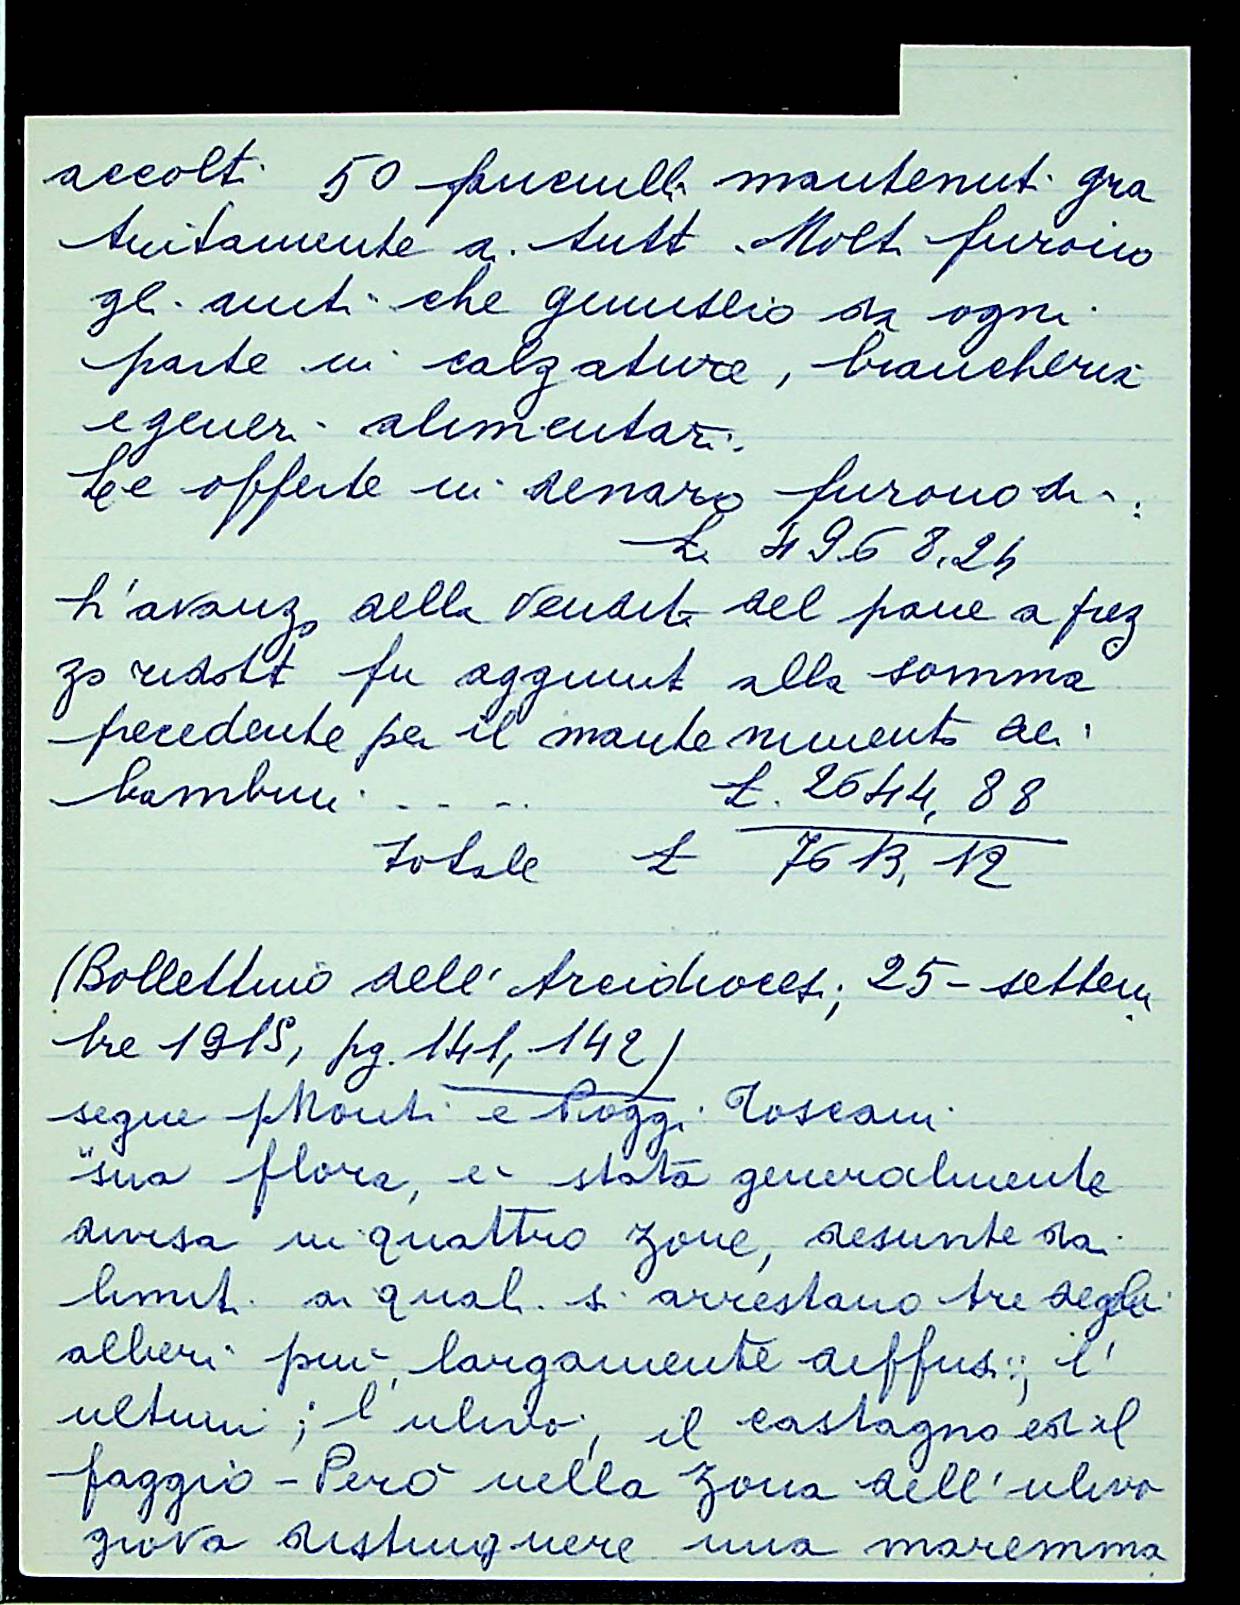 accolti 50 fanciulli mantenuti gra
tuitamente di tutto. Molti furono
gli aiuti che giunsero da ogni
parte in calzature, biancheria
e generi alimentari.
Le offerte in denaro furono di:
L. 4968.24
L'avanzo della vendita del pane a prez
zo ridotto fu aggiunto alla somma
precedente per il mantenimento dei
bambini . - - - . £. 2644,88
totale £ 7613,12
(Bollettino dell'Arcidiocesi; 25 - settem
bre 1915, pg. 141, 142)
segue Monti e Poggi Toscani
"sua flora, è stata generalmente
divisa in quattro zone, desunte dai
limiti ai quali si arrestano tre degli
alberi più largamente diffusi;
; l'ulivo, il castagno ed il
faggio - Però nella zona dell'ulivo
giova distinguere una maremma